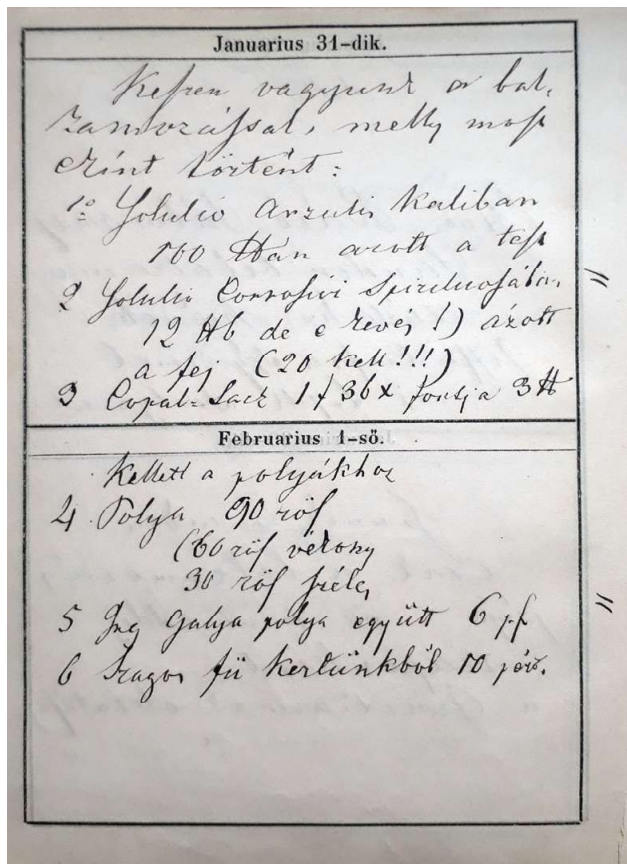 Januarius 31-dik.
Keszen vagyunk a bal,
zamozással, melly most
ezint történt:
1º Solutió Arzulis Kaliban
100 ttán azott a test
2 Solutio Corrosivi Spirituosában
12 ttb de e keves!) ázott
a fej (20 kell!!!)
3 Copal-Lack 1 f 36 x fontja 3 tt
Februarius 1-ső.
Kellett a polyákhoz
4 Polya 90 röf
(60 röf vékony
30 röf széles
5 Ing Gatya polya együtt 6 pf
6 Szagos fü kertünkböl 10